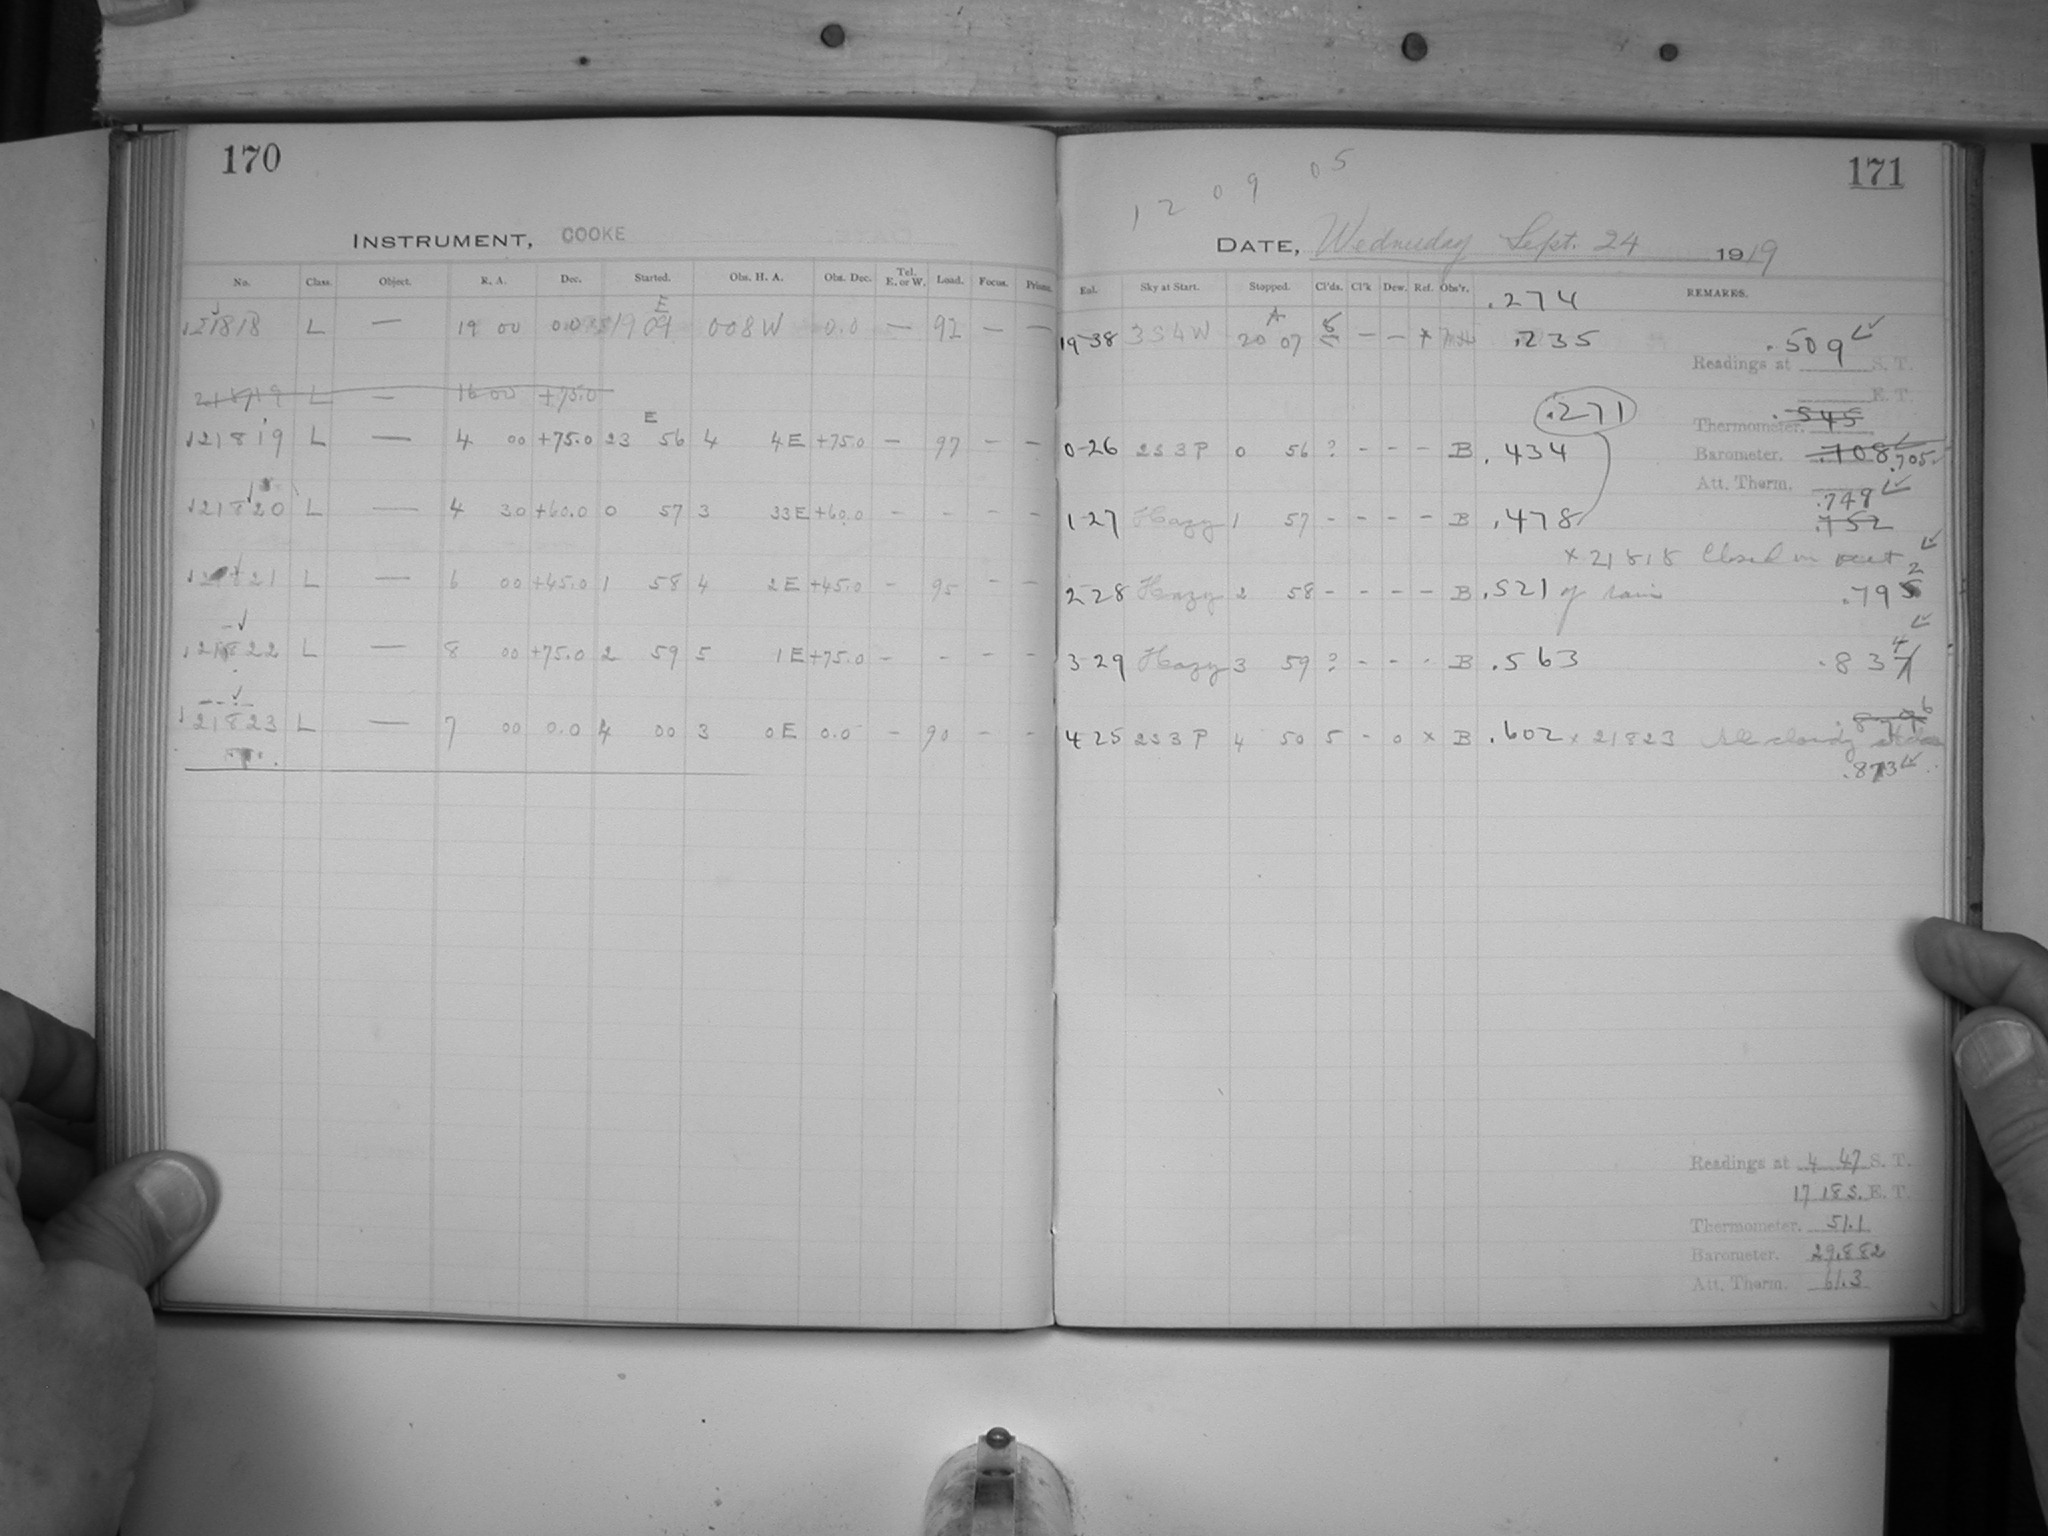 170
INSTRUMENT, COOKE
No. Class. Object. R. A. Dec. Started. Obs. H. A. Obs. Dec. Tel. E. or W. Load. Focus. Prisms.
E
21818 L — 19 00 0.0 19 09 0 08 W 0.0 — 92 — —
21819 L — 16 00 +75.0
E
21819 L — 4 00 +75.0 23 56 4 4 E +75.0 — 97 - -
21820 L — 4 30 +60.0 0 57 3 33 E +60.0 - - - -
21821 L — 6 00 +45.0 1 58 4 2 E +45.0 - 95 - -
21822 L — 8 00 +75.0 2 59 5 1 E +75.0 - - - -
21823 L — 7 00 0.0 4 00 3 0 E 0.0 - 90 - -
1 2 0 9 0 5
171
DATE, Wednesday Sept. 24 1919
Sky at Start. Stopped. Cl'ds. Cl'k Dew. Ref. Obs'r. .274 REMARKS.
A
19-38 3 S 4 W 20 07 — — × .235 .509
Readings at S. T.
E. T.
.271 Thermometer. .545
0-26 2 S 3 P 0 56 ? - - - B .434 Barometer. .708 .705
Att. Therm. .748
1-27 Hazy 1 57 - - - - B .478 .752
× 21818 Closed on acct
2-28 Hazy 2 58 - - - - B .521 of rain .79
3-29 Hazy 3 59 ? - - - B .563 .83
4-25 2 S 3 P 4 50 5 - 0 × B .602 × 21823 All cloudy
.873
Readings at 4 47 S. T.
17 18 S. E. T.
Thermometer. 51.1
Barometer. 29.882
Att. Therm. 61.3